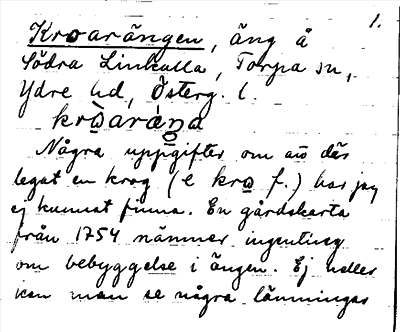 1.
Kroarängen, äng å
Södra Linkulla, Torpa sn,
Ydre hd, Österg. l.
kròaráŋa
Några uppgifter om att där
legat en krog (e kro f.) har jag
ej kunnat finna. En gårdskarta
från 1754 nämner ingenting
om bebyggelse i ängen. Ej heller
kan man se några lämningar